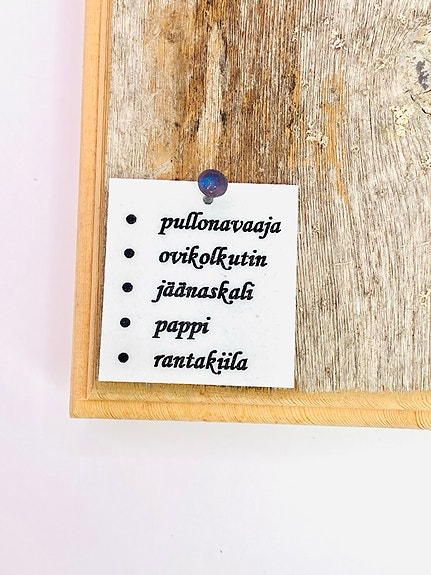 • pullonavaaja
• ovikolkutin
• jäänaskali
• pappi
• rantakiila